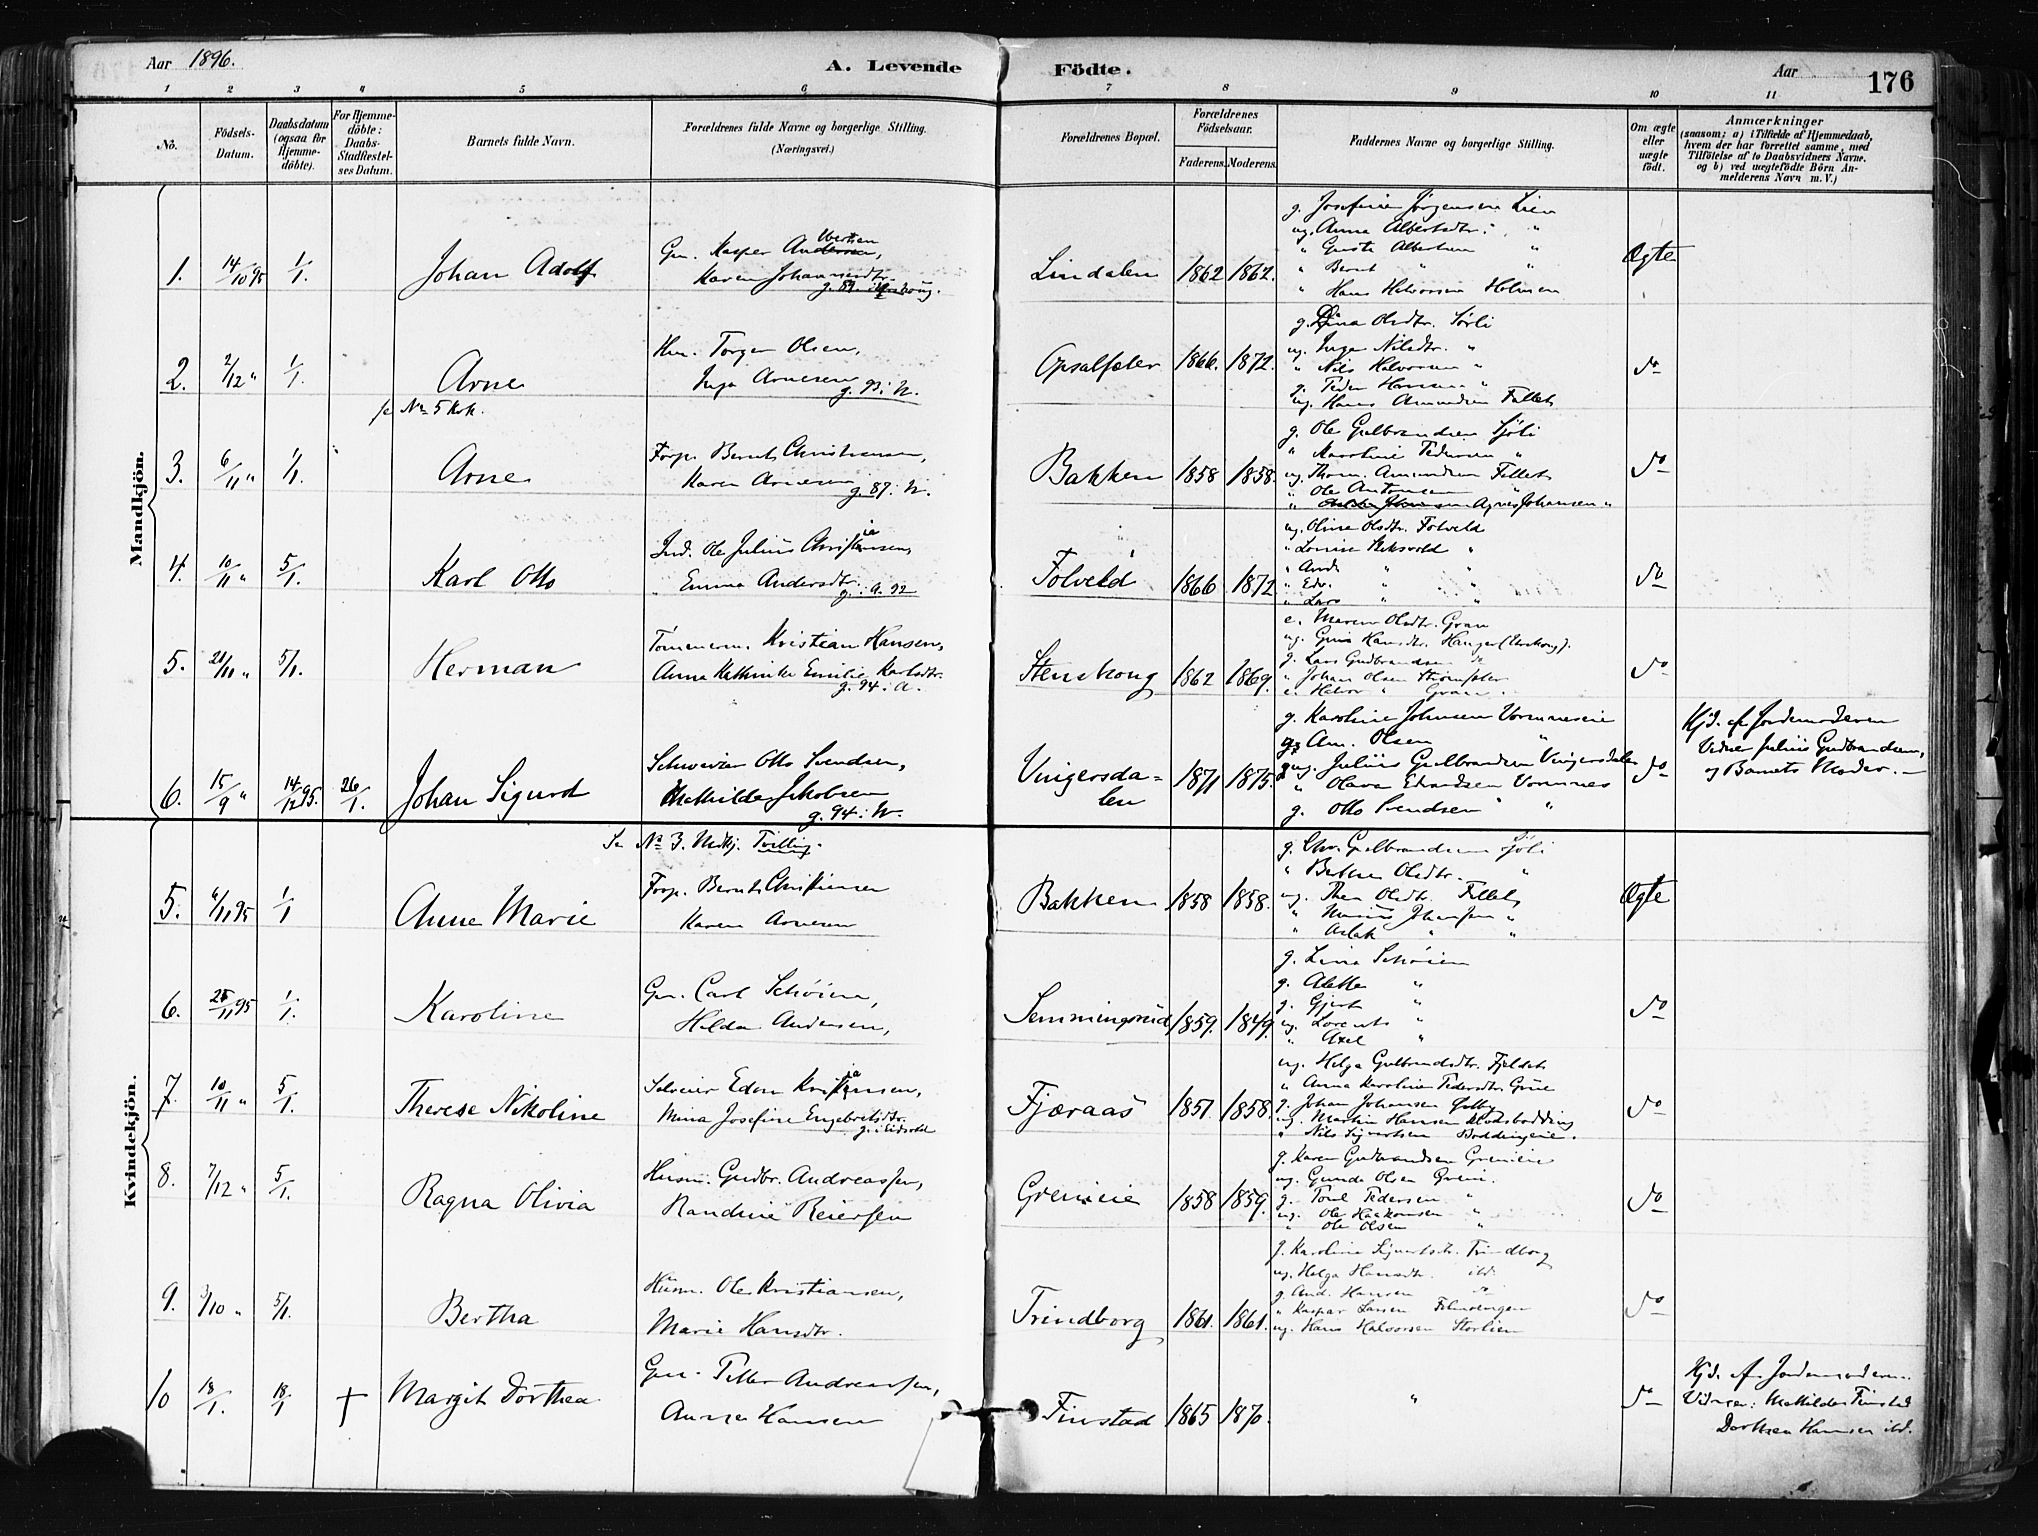 Aar 1896.
A. Levende Födte.
Aar
176
1 2 3 4 5 6 7 8 9 10 11
No.
Födsels-Datum.
Daabsdatum (ogsaa for Hjemmedöbte).
For Hjemmedöbte: Daabs-Stadfæstelses Datum.
Barnets fulde Navn.
Forældrenes fulde Navne og borgerlige Stilling. (Næringsvei.)
Forældrenes Bopæl.
Forældrenes Födselsaar.
Faderens. Moderens.
Faddernes Navne og borgerlige Stilling.
Om ægte eller uægte födt.
Anmærkninger
(saasom; a) i Tilfælde af Hjemmedaab,
hvem der har forrettet samme, med
Tilföielse af to Daabsvidners Navne.
og b) ved uægtefödte Börn An-
melderens Navn m. V.)
Mandkjön.
1. 14/10 95 1/1. Johan Adolf
Gm. Kasper Andersen,
Karen Johannesdtr.
Lindalen 1862 1862.
g. Josefine Jørgensen Lien
ug. Anna Albertsdtr. "
" Gusta Albertsen "
" Bernt " "
" Hans Halvorsen Holmsen
Ægte
2. 2/12 " 1/1. Arne
Hm. Torger Olsen,
Inga Arnesen
g. 93. N.
Opsalfeler 1866. 1872.
g. Lina Olsdtr. Sørli
ug. Inga Nilsdtr. "
" Nils Halvorsen "
g. Peder Hansen "
ug. Hans Amundsen Fallet
do
se No 5 Kvk.
3. 6/11 " 1/1. Arne
Forp. Bernt Christiansen,
Karen Arnesen
g. 87. N.
Bakken 1858 1858.
g. Ole Gulbrandsen Sjöli
" Karoline Pedersen "
ug. Thorv. Amundsen Fillet
" Ole Antonsen "
" Agnes Johansen "
do
4. 10/11 " 5/1. Karl Otto
Ind. Ole Julius Christiansen,
" Emma Andersdtr.
g. A. 92
Folveld 1866 1872
ug. Oline Olsdtr. Folveld
" Lovise "
" And. " "
" Edv. " "
" Lars " "
do
5. 21/11 " 5/1. Herman
Tømmerm. Kristian Hansen,
Anna Kathinka Emilie Karlsdtr.
g. 94. A.
Stenskong 1862 1869.
e. Maren Olsdtr. Gran
ug. Gina Hansdtr. Hanger (Urskoug).
g. Lars Gudbrandsen do
" Johan Olsen
e. Halvor " Gran.
do
6. 15/9 " 14/12 95. 26/1. Johan Sigurd
Schweizer Otto Svendsen,
Mathilde Jakobsen
g. 94. N.
Vingersdalen 1871 1875.
g. Karoline Johnsen Vormneseie
Am. Olsen "
ug. Julius Gulbrandsen Vingersdalen
" Olava Edvardsen Vormnes
g. Otto Svendsen "
do
Hjd. af Jordemoderen
Vidner Julius Gudbrandsen,
og Barnets Moder. —
Kvindekjön.
Se No 3. Mdkj. Tvilling.
5. 6/11 95 1/1 Anne Marie
Forp. Bernt Christiansen
Karen Arnesen
Bakken 1858 1858.
g. Chr. Gulbrandsen Sjöli
" Berthe Olsdtr. "
ug. Thea Olsdtr. Fillet
" Marius Johansen "
" Aslak " "
Ægte
6. 25/11 95 1/1. Karoline
Gm. Carl Schøien,
Hilda Andersen,
Semmingsrud 1859. 1849.
g. Lina Schøien
g. Alette "
g. Gjert "
ug. Lorents "
" Axel "
do
7. 10/11 " 5/1. Therese Nikoline
Selveier Edon Kristiansen,
Mina Josefine Engebretsdtr.
g. i Eidsvold
Fjæraas 1857. 1858.
ug. Helga Gulbrandsdtr. Fjeldet
" Anna Karoline Pedersdtr. Grue
g. Johan Johansen Galby
ug. Martin Hansen
" Nils Sigvartsen Boddingeie.
do
8. 7/12 " 5/1. Ragna Olivia
Husm. Gudbr. Andreassen,
Randine Reiersen
Grenieie 1858 1859.
g. Karen Gudbrandsen Grenieie
ug. Gunda Olsen Greni.
g. Povl Pedersen "
ug. Ole Haakonsen "
" Ole Olsen "
do
9. 3/10 " 5/1. Bertha
Husm. Ole Kristiansen,
Marie Hansdtr.
Trindborg 1861. 1861.
g. Karoline Sigvartsdtr. Trindborg
ug. Helga Hansdtr. ibd.
g. And. Hansen do
" Kaspar Larsen
ug. Hans Halvorsen Storlien
do
10 18/1. 18/1 † Margit Dorthea
Gm. Petter Andreassen,
Anna Hansen
Finstad 1865 1870.
"
do
Hjd. af Jordemoderen.
Vidner: Mathilde Finstad
Dorthea Hansen ibd.